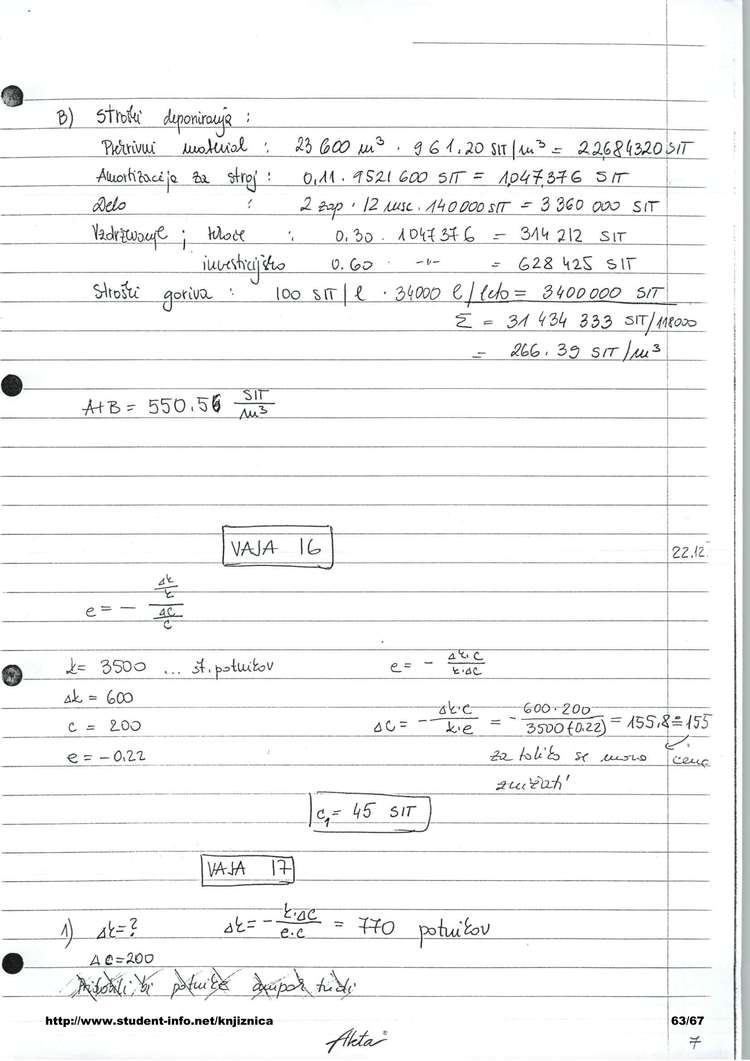 B) Stroški deponiranja :
Prekrivni material : 23 600 m³ · 961,20 SIT/m³ = 22684320 SIT
Amortizacija za stroj : 0,11 · 9521 600 SIT = 1,047,376 SIT
Delo : 2 zap · 12 mes. · 140000 SIT = 3 360 000 SIT
Vzdrževanje ; tekoče : 0,30 · 1047376 = 314 212 SIT
investicijsko 0.60 · -"- = 628 425 SIT
Stroški goriva : 100 SIT/l · 34000 l/leto = 3400000 SIT
Σ = 31 434 333 SIT/118000
= 266,39 SIT/m³
A+B = 550,56 SIT/m³
VAJA 16
22.12.
e = - (Δk/k)/(ΔC/C)
k = 3500 ... št. potnikov e = - Δk·C/k·ΔC
Δk = 600
c = 200 ΔC = - Δk·C/k·e = - 600·200/3500(-0,22) = 155,8 ≐ 155
e = -0,22 za toliko se mora cena
znižati
c₁ = 45 SIT
VAJA 17
1) Δk = ? Δk = - k·ΔC/e·c = 770 potnikov
ΔC = 200
Pridobili bi potnike ampak tudi
http://www.student-info.net/knjiznica 63/67
Akta® 7